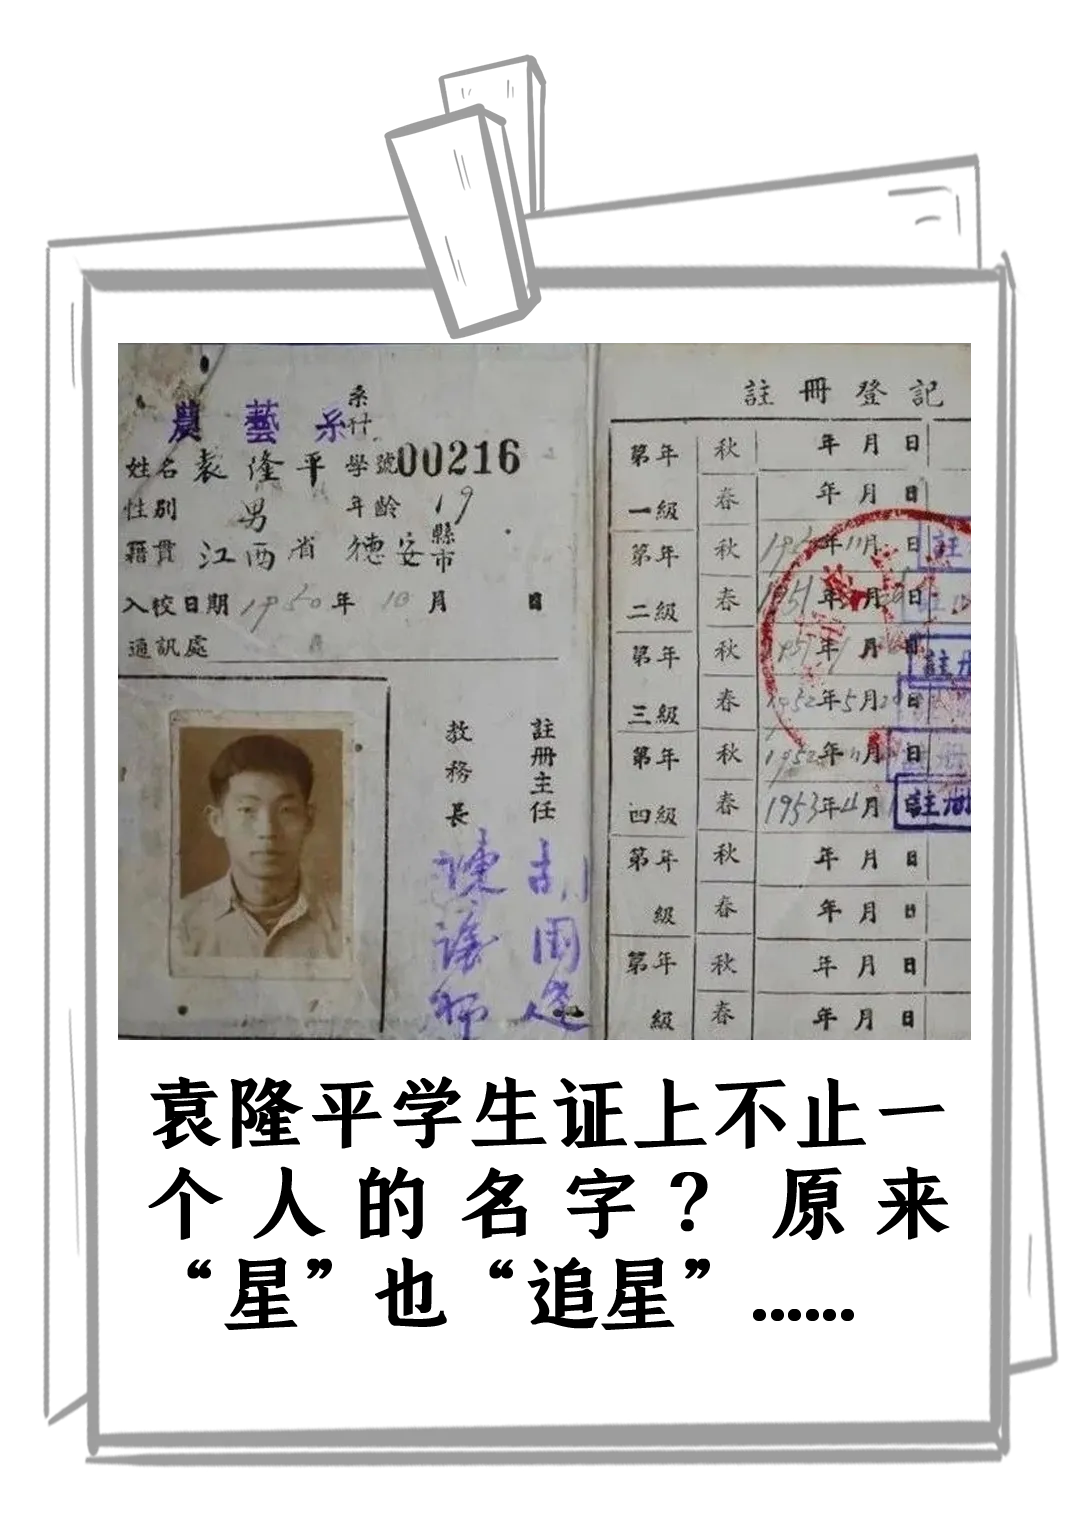 農藝系
系
科
姓名 袁隆平 學號00216
性別 男 年齡 19
籍貫 江西省 德安縣市
入校日期 1950年 10月 日
通訊處
教務長
註冊主任
註冊登記
第年 秋 年月日
一級 春 年月日
第年 秋 年11月 日
二級 春 1951年 月 日
第年 秋 1951年 月 日 註冊
三級 春 1952年5月 日
第年 秋 1952年11月 日
四級 春 1953年4月 日 註冊
第年 秋 年月日
級 春 年月日
第年 秋 年月日
級 春 年月日
袁隆平学生证上不止一
个人的名字？原来
“星”也“追星”……